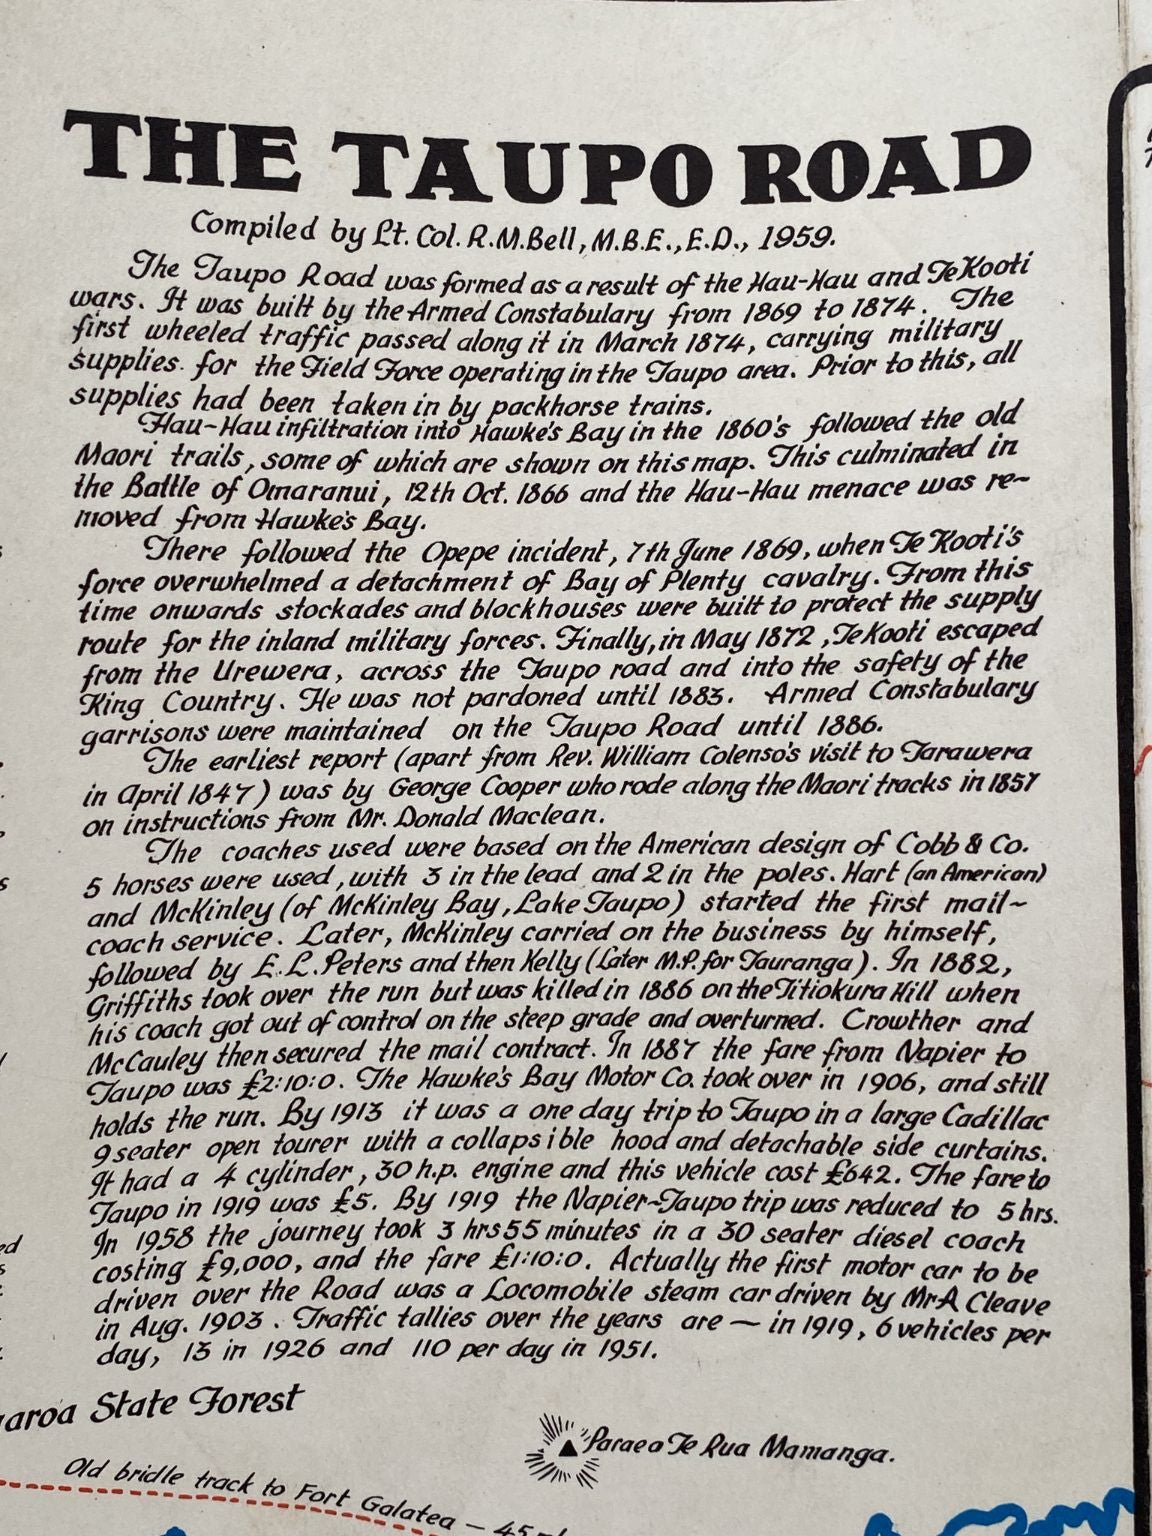 THE TAUPO ROAD
Compiled by Lt. Col. R.M.Bell, M.B.E., E.D., 1959.
The Taupo Road was formed as a result of the Hau-Hau and Te Kooti
wars. It was built by the Armed Constabulary from 1869 to 1874. The
first wheeled traffic passed along it in March 1874, carrying military
supplies for the Field Force operating in the Taupo area. Prior to this, all
supplies had been taken in by packhorse trains.
Hau-Hau infiltration into Hawke's Bay in the 1860's followed the old
Maori trails, some of which are shown on this map. This culminated in
the Battle of Omaranui, 12th Oct. 1866 and the Hau-Hau menace was re-
moved from Hawke's Bay.
There followed the Opepe incident, 7th June 1869, when Te Kooti's
force overwhelmed a detachment of Bay of Plenty cavalry. From this
time onwards stockades and blockhouses were built to protect the supply
route for the inland military forces. Finally, in May 1872, Te Kooti escaped
from the Urewera, across the Taupo road and into the safety of the
King Country. He was not pardoned until 1883. Armed Constabulary
garrisons were maintained on the Taupo Road until 1886.
The earliest report (apart from Rev. William Colenso's visit to Tarawera
in April 1847) was by George Cooper who rode along the Maori tracks in 1857
on instructions from Mr. Donald Maclean.
The coaches used were based on the American design of Cobb & Co.
5 horses were used, with 3 in the lead and 2 in the poles. Hart (an American)
and McKinley (of McKinley Bay, Lake Taupo) started the first mail-
coach service. Later, McKinley carried on the business by himself,
followed by E.L.Peters and then Kelly (Later M.P. for Tauranga). In 1882,
Griffiths took over the run but was killed in 1886 on the Titiokura Hill when
his coach got out of control on the steep grade and overturned. Crowther and
McCauley then secured the mail contract. In 1887 the fare from Napier to
Taupo was £2:10:0. The Hawke's Bay Motor Co. took over in 1906, and still
holds the run. By 1913 it was a one day trip to Taupo in a large Cadillac
9 seater open tourer with a collapsible hood and detachable side curtains.
It had a 4 cylinder, 30 h.p. engine and this vehicle cost £642. The fare to
Taupo in 1919 was £5. By 1919 the Napier-Taupo trip was reduced to 5 hrs.
In 1958 the journey took 3 hrs 55 minutes in a 30 seater diesel coach
costing £9,000, and the fare £1:10:0. Actually the first motor car to be
driven over the Road was a Locomobile steam car driven by Mr A Cleave
in Aug. 1903. Traffic tallies over the years are — in 1919, 6 vehicles per
day, 13 in 1926 and 110 per day in 1951.
aroa State Forest
Paraea Te Rua Mamanga.
Old bridle track to Fort Galatea - 45